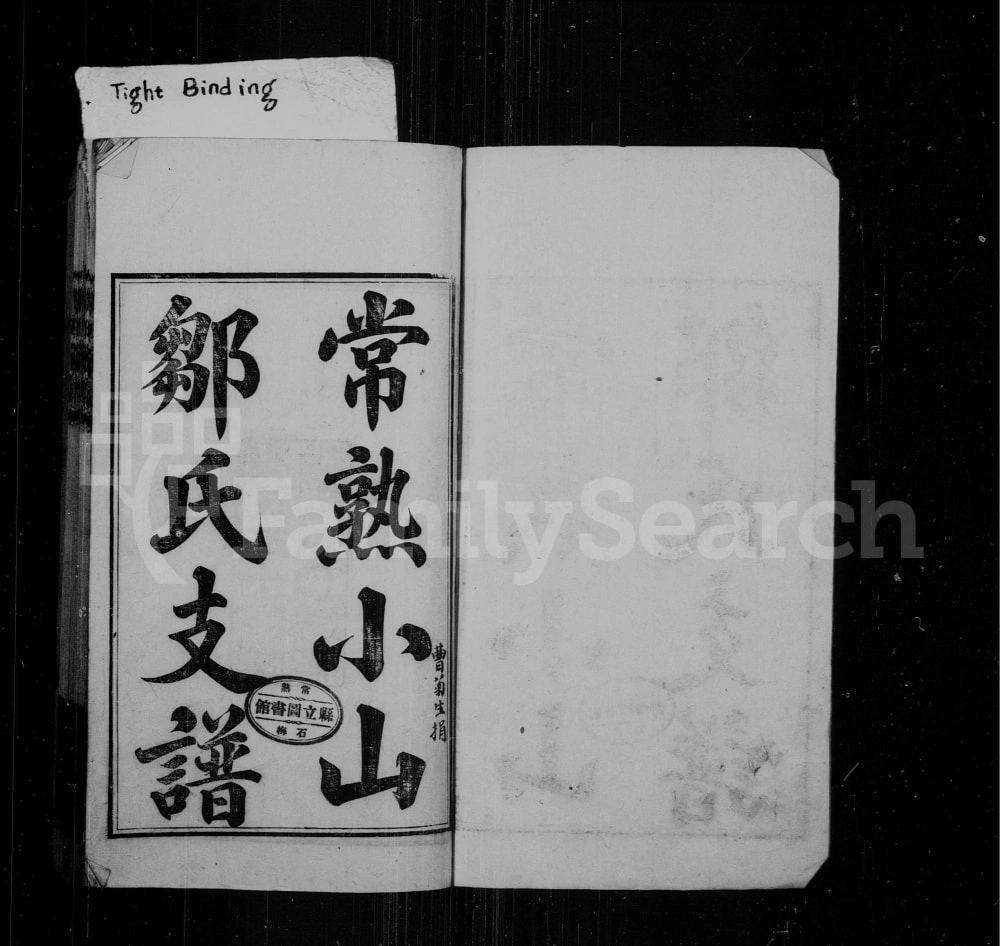 Tight Binding
常熟小山
鄒氏支譜
曹菊生捐
常熟
縣立圖書館
石梅
FamilySearch